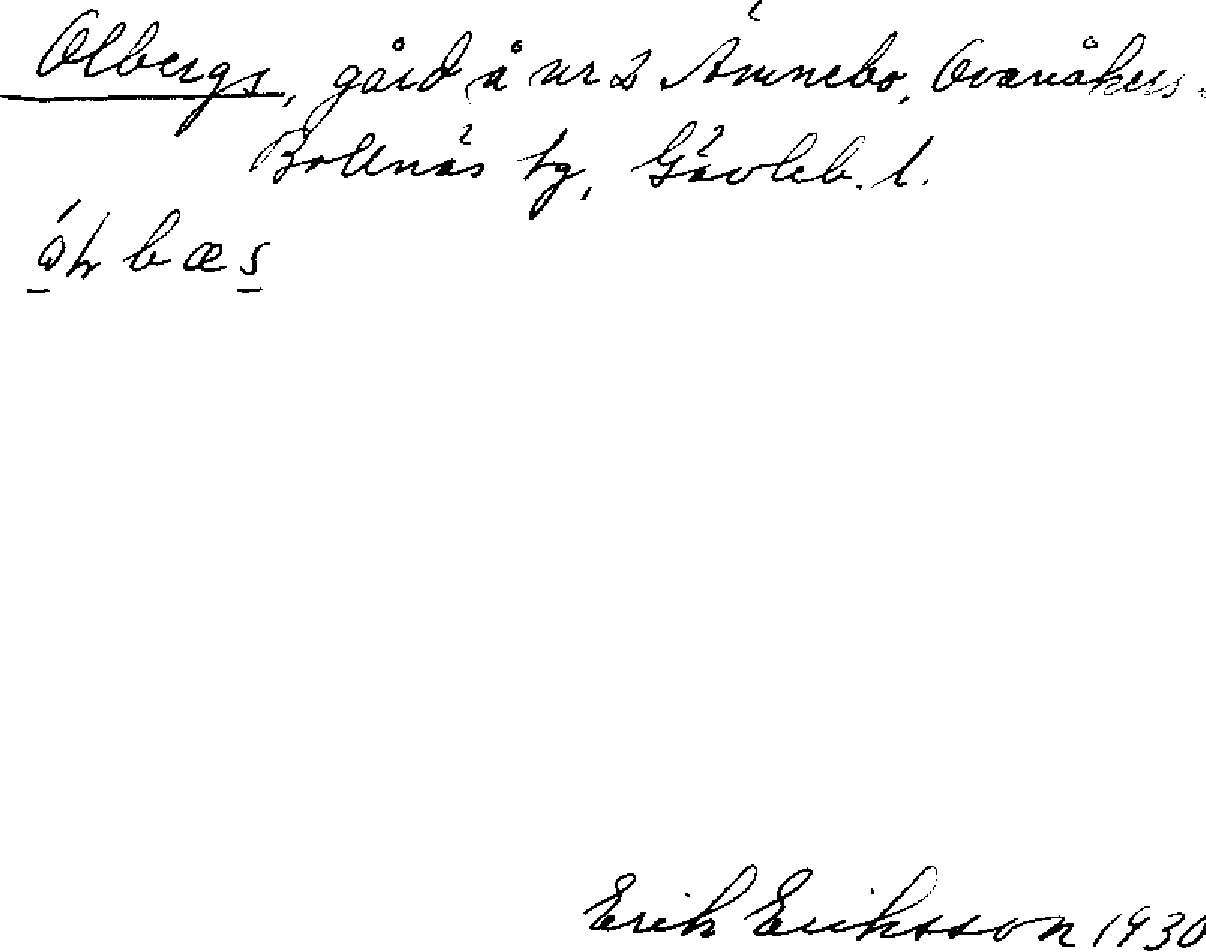 Olbergs, gård å nr 2 Ämnebo, Ovanåkers s.
Bollnäs tg, Gävleb. l.
Erik Eriksson 1930